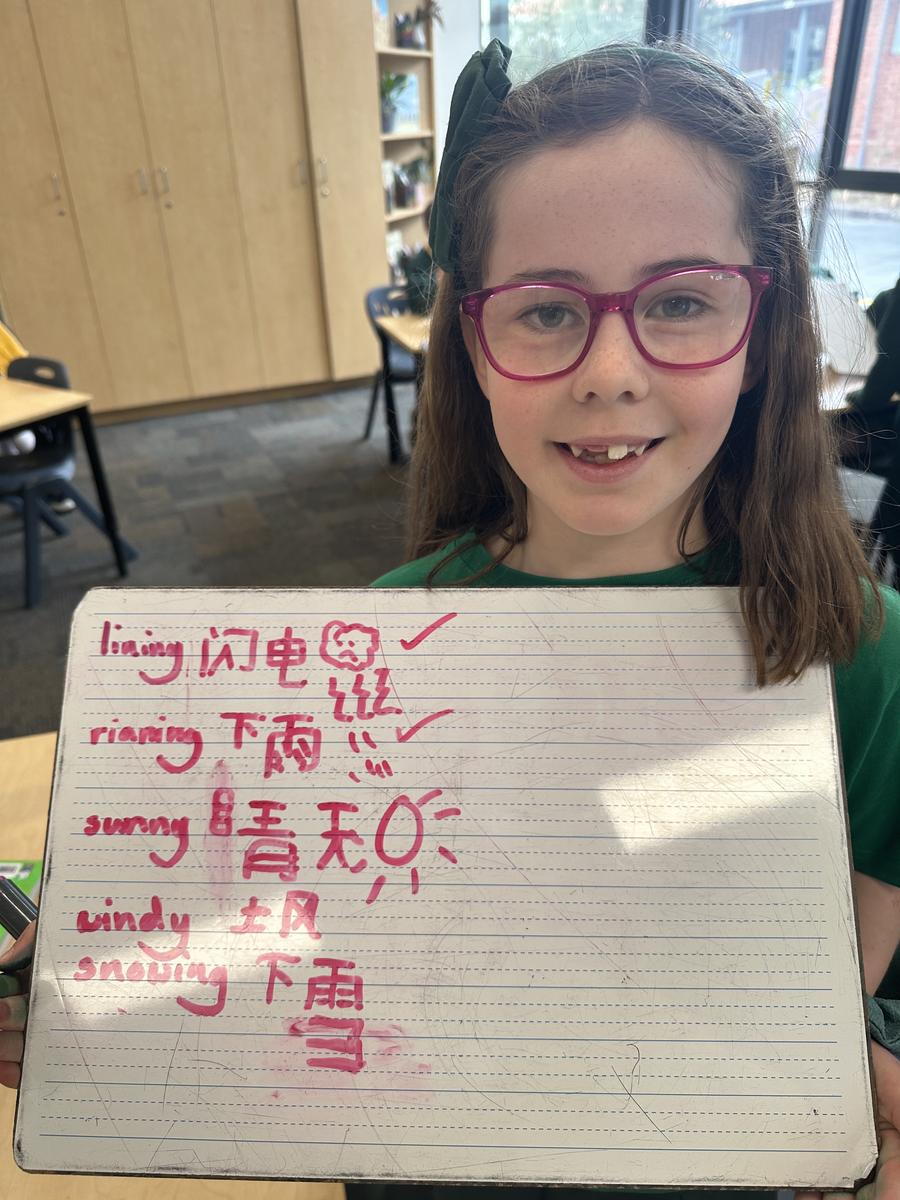 lining 闪电
rianing 下雨
sunny 晴天
windy 土风
snowing 下雪